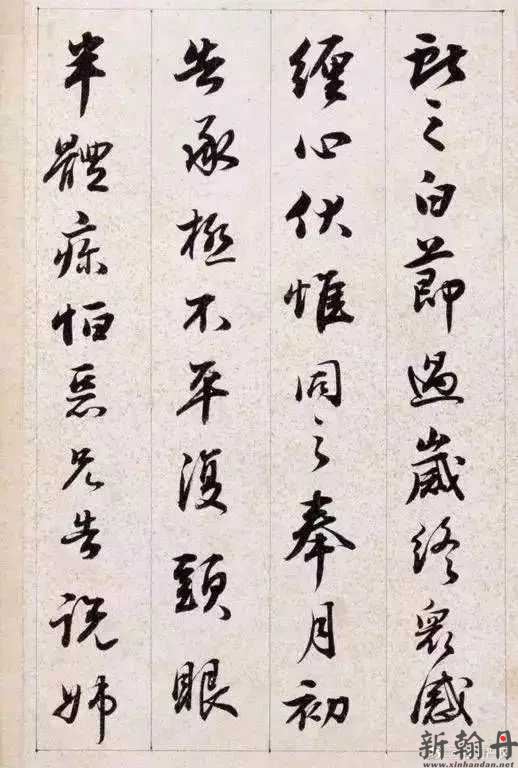 獻之白節過歲終衆感
纏心伏惟同之奉月初
告承極不平復頭眼
半體疼怕惡兄告說姊
新翰丹
www.xinhandan.net